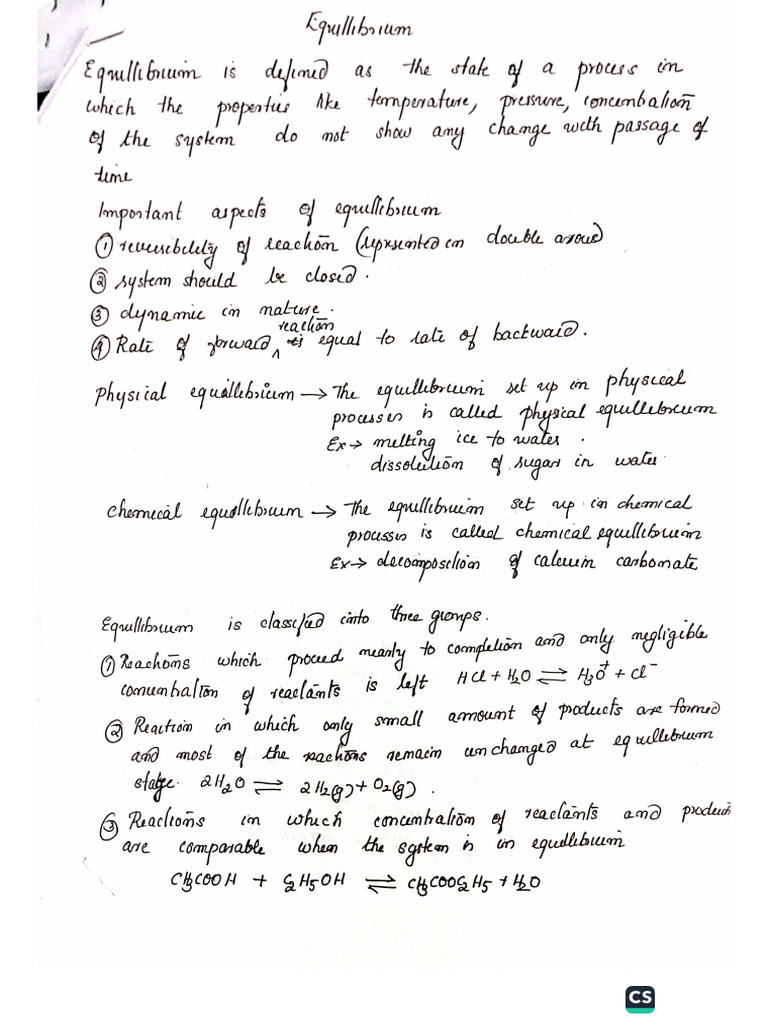 Equillibrium
Equillibrium is defined as the state of a process in
which the properties like temperature, pressure, concentration
of the system do not show any change with passage of
time
Important aspects of equillibrium
① reversibility of reaction (represented in double arrow)
② system should be closed.
③ dynamic in nature.
④ Rate of forward reaction is equal to rate of backward.
Physical equillibrium → The equillibrium set up in physical
processes is called physical equillibrium
Ex → melting ice to water.
dissolution of sugar in water
chemical equillibrium → The equillibrium set up in chemical
processes is called chemical equillibrium
Ex → decomposition of calcium carbonate
Equillibrium is classified into three groups.
① Reactions which proceed nearly to completion and only negligible
concentration of reactants is left HCl + H₂O ⇌ H₃O⁺ + Cl⁻
② Reaction in which only small amount of products are formed
and most of the reactions remain unchanged at equillibrium
stage. 2H₂O ⇌ 2H₂(g) + O₂(g).
③ Reactions in which concentration of reactants and products
are comparable when the system is in equillibrium
CH₃COOH + C₂H₅OH ⇌ CH₃COOC₂H₅ + H₂O
CS